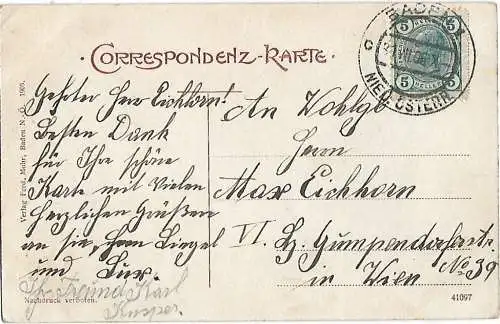 Correspondenz-Karte.
BADEN
NIED. ÖSTERR.
5 5
5 HELLER 5
Geehrter Herr Eichhorn!
Besten Dank
für Ihre schöne
Karte mit Vielen
herzlichen Grüßen
an sie, Herrn
und
Ihr Freund Karl
An Wohlge
Herrn
Max Eichhorn
VI. Gumpendorferstr.
No 39
in Wien
Verlag Ferd. Mohr, Baden N.-Ö. 1909.
Nachdruck verboten.
41097